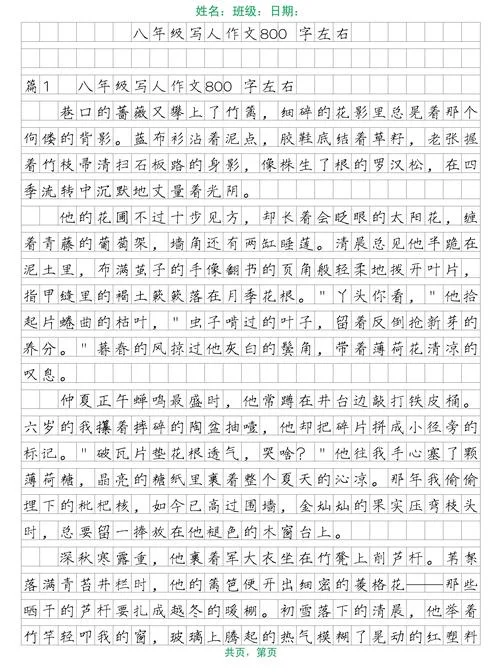 姓名：班级：日期：
八年级写人作文800 字左右
篇1　八年级写人作文800 字左右
巷口的蔷薇又攀上了竹篱，细碎的花影里总晃着那个
佝偻的背影。蓝布衫沾着泥点，胶鞋底结着草籽，老张握
着竹枝帚清扫石板路的身影，像株生了根的罗汉松，在四
季流转中沉默地丈量着光阴。
他的花圃不过十步见方，却长着会眨眼的太阳花，缠
着青藤的葡萄架，墙角还有两缸睡莲。清晨总见他半跪在
泥土里，布满茧子的手像翻书的页角般轻柔地拨开叶片，
指甲缝里的褐土簌簌落在月季花根。"丫头你看，"他拾
起片蜷曲的枯叶，"虫子啃过的叶子，留着反倒抢新芽的
养分。"暮春的风掠过他灰白的鬓角，带着薄荷花清凉的
叹息。
仲夏正午蝉鸣最盛时，他常蹲在井台边敲打铁皮桶。
六岁的我攥着摔碎的陶盆抽噎，他却把碎片拼成小径旁的
标记。"破瓦片垫花根透气，哭啥？"他往我手心塞了颗
薄荷糖，晶亮的糖纸里裹着整个夏天的沁凉。那年我偷偷
埋下的枇杷核，如今已高过围墙，金灿灿的果实压弯枝头
时，总要留一捧放在他褪色的木窗台上。
深秋寒露重，他裹着军大衣坐在竹凳上削芦杆。苇絮
落满青苔井栏时，他的篱笆便开出细密的菱格花——那些
晒干的芦杆要扎成越冬的暖棚。初雪落下的清晨，他举着
竹竿轻叩我的窗，玻璃上腾起的热气模糊了晃动的红塑料
共页，第页